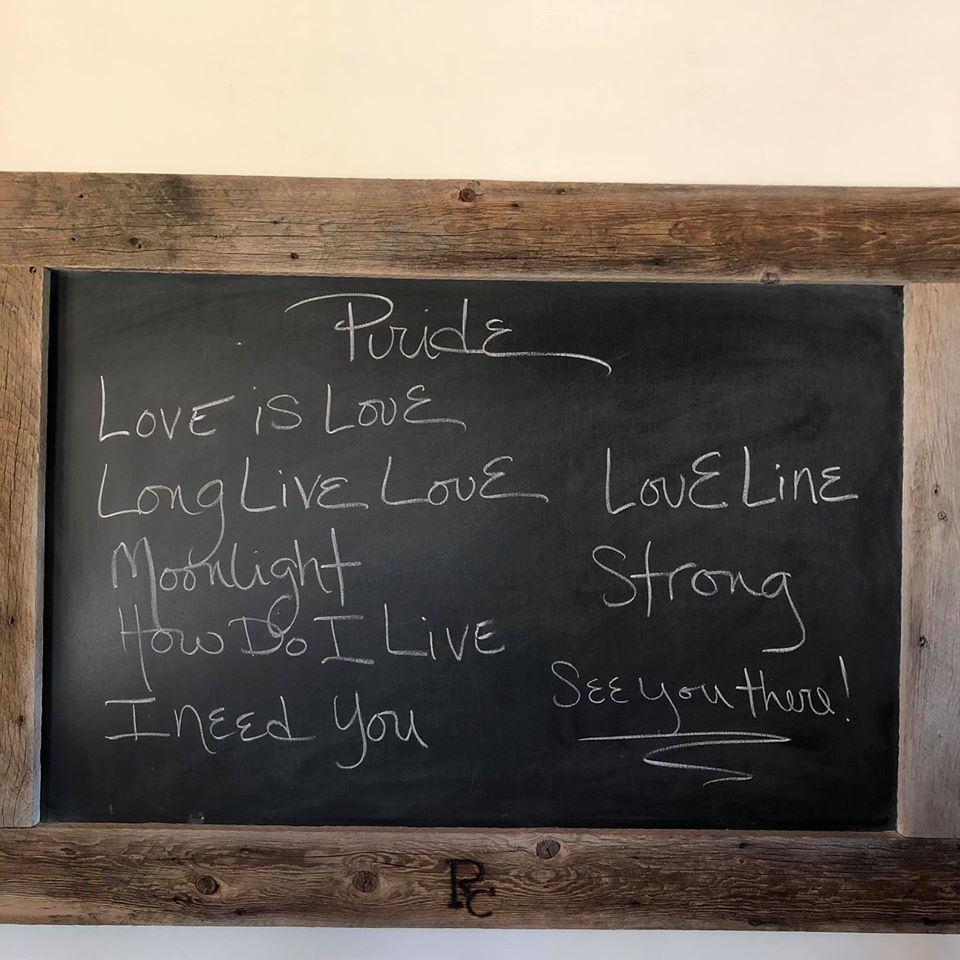 Pride
Love is Love
Long Live Love
Moonlight
How Do I Live
I need you
Love Line
Strong
See you there!
RC